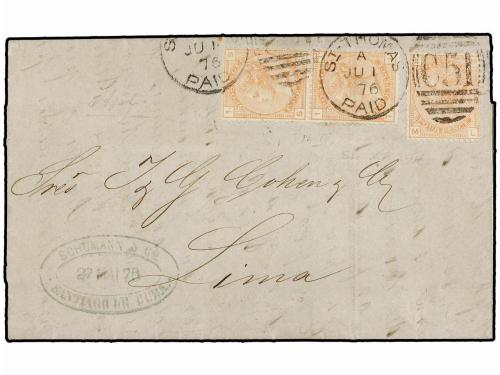 ST. THOMAS
A
JU 1
76
PAID
ST. THOMAS
A
JU 1
76
PAID
C51
S
I
I
S
M
L
Sres
Cohen y Ca
Lima
SCHUMANN & Co.
27 MAI 76
SANTIAGO DE CUBA